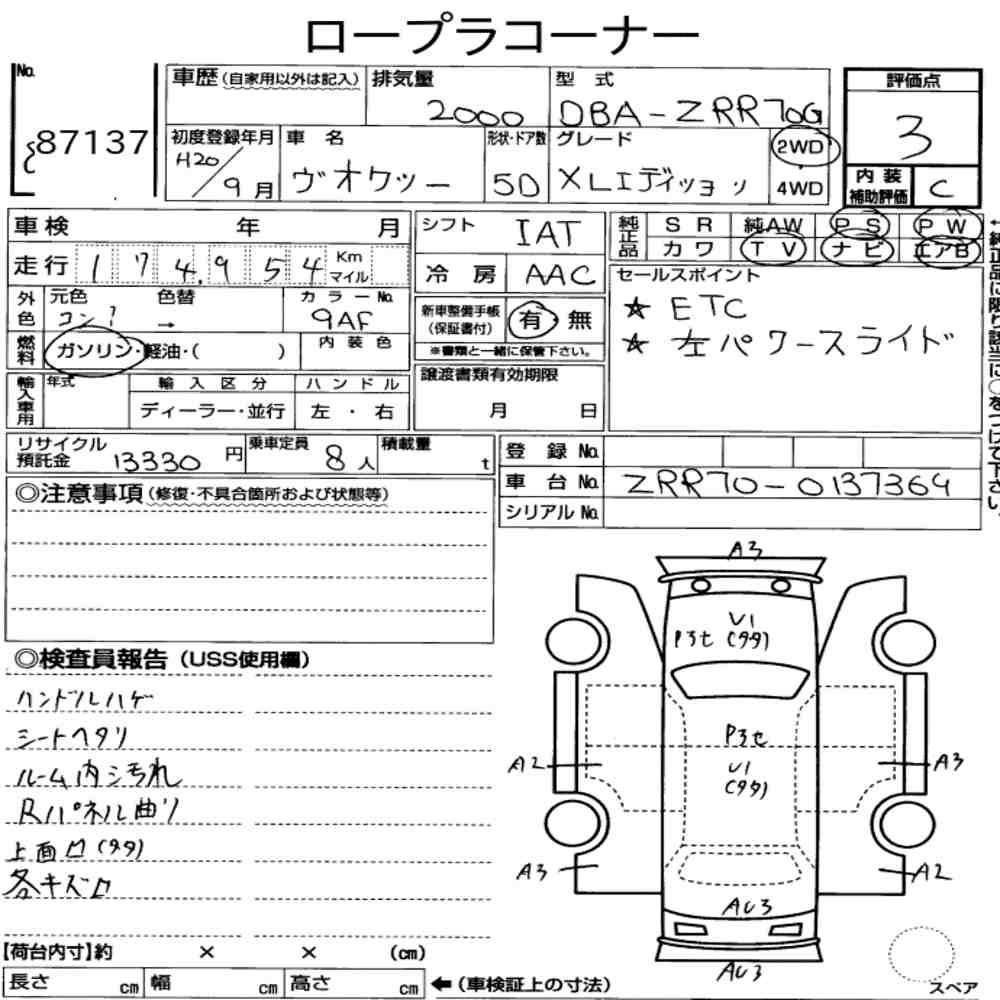 ロープラコーナー
No.
87137
車歴 (自家用以外は記入)
排気量
2000
型 式
DBA-ZRR70G
評価点
3
初度登録年月
H20/9月
車 名
ヴオクシー
形状・ドア数
5D
グレード
XLIディッョン
2WD
4WD
内装補助評価
C
車検 年 月
シフト
IAT
純正品
SR 純AW PS PW
カワ TV ナビ エアB
走行 174,954 Km マイル
冷房 AAC
セールスポイント
☆ ETC
☆ 左パワースライド
外色
元色
コン
色替
→
カラーNo.
9AF
新車整備手帳
(保証書付)
有・無
※書類と一緒に保管下さい。
燃料
ガソリン・軽油・( )
内装色
輸入車用
年式
輸入区分
ディーラー・並行
ハンドル
左・右
譲渡書類有効期限
月 日
リサイクル
預託金 13330円
乗車定員
8人
積載量
t
登録 No.
車台 No. ZRR70-0137364
シリアル No.
◎注意事項 (修復・不具合箇所および状態等)
◎検査員報告 (USS使用欄)
ハンドルハゲ
シートヘタリ
ルーム内シ汚れ
Rパネル曲リ
上面凹(タタ)
各キズ凹
A3
U1
P3セ (タタ)
P3セ
U1
(タタ)
A2
A3
A3
A2
AU3
AU3
スペア
【荷台内寸】約 × × (cm)
長さ cm 幅 cm 高さ cm
←(車検証上の寸法)
←純正品に限り該当に○をつけて下さい。